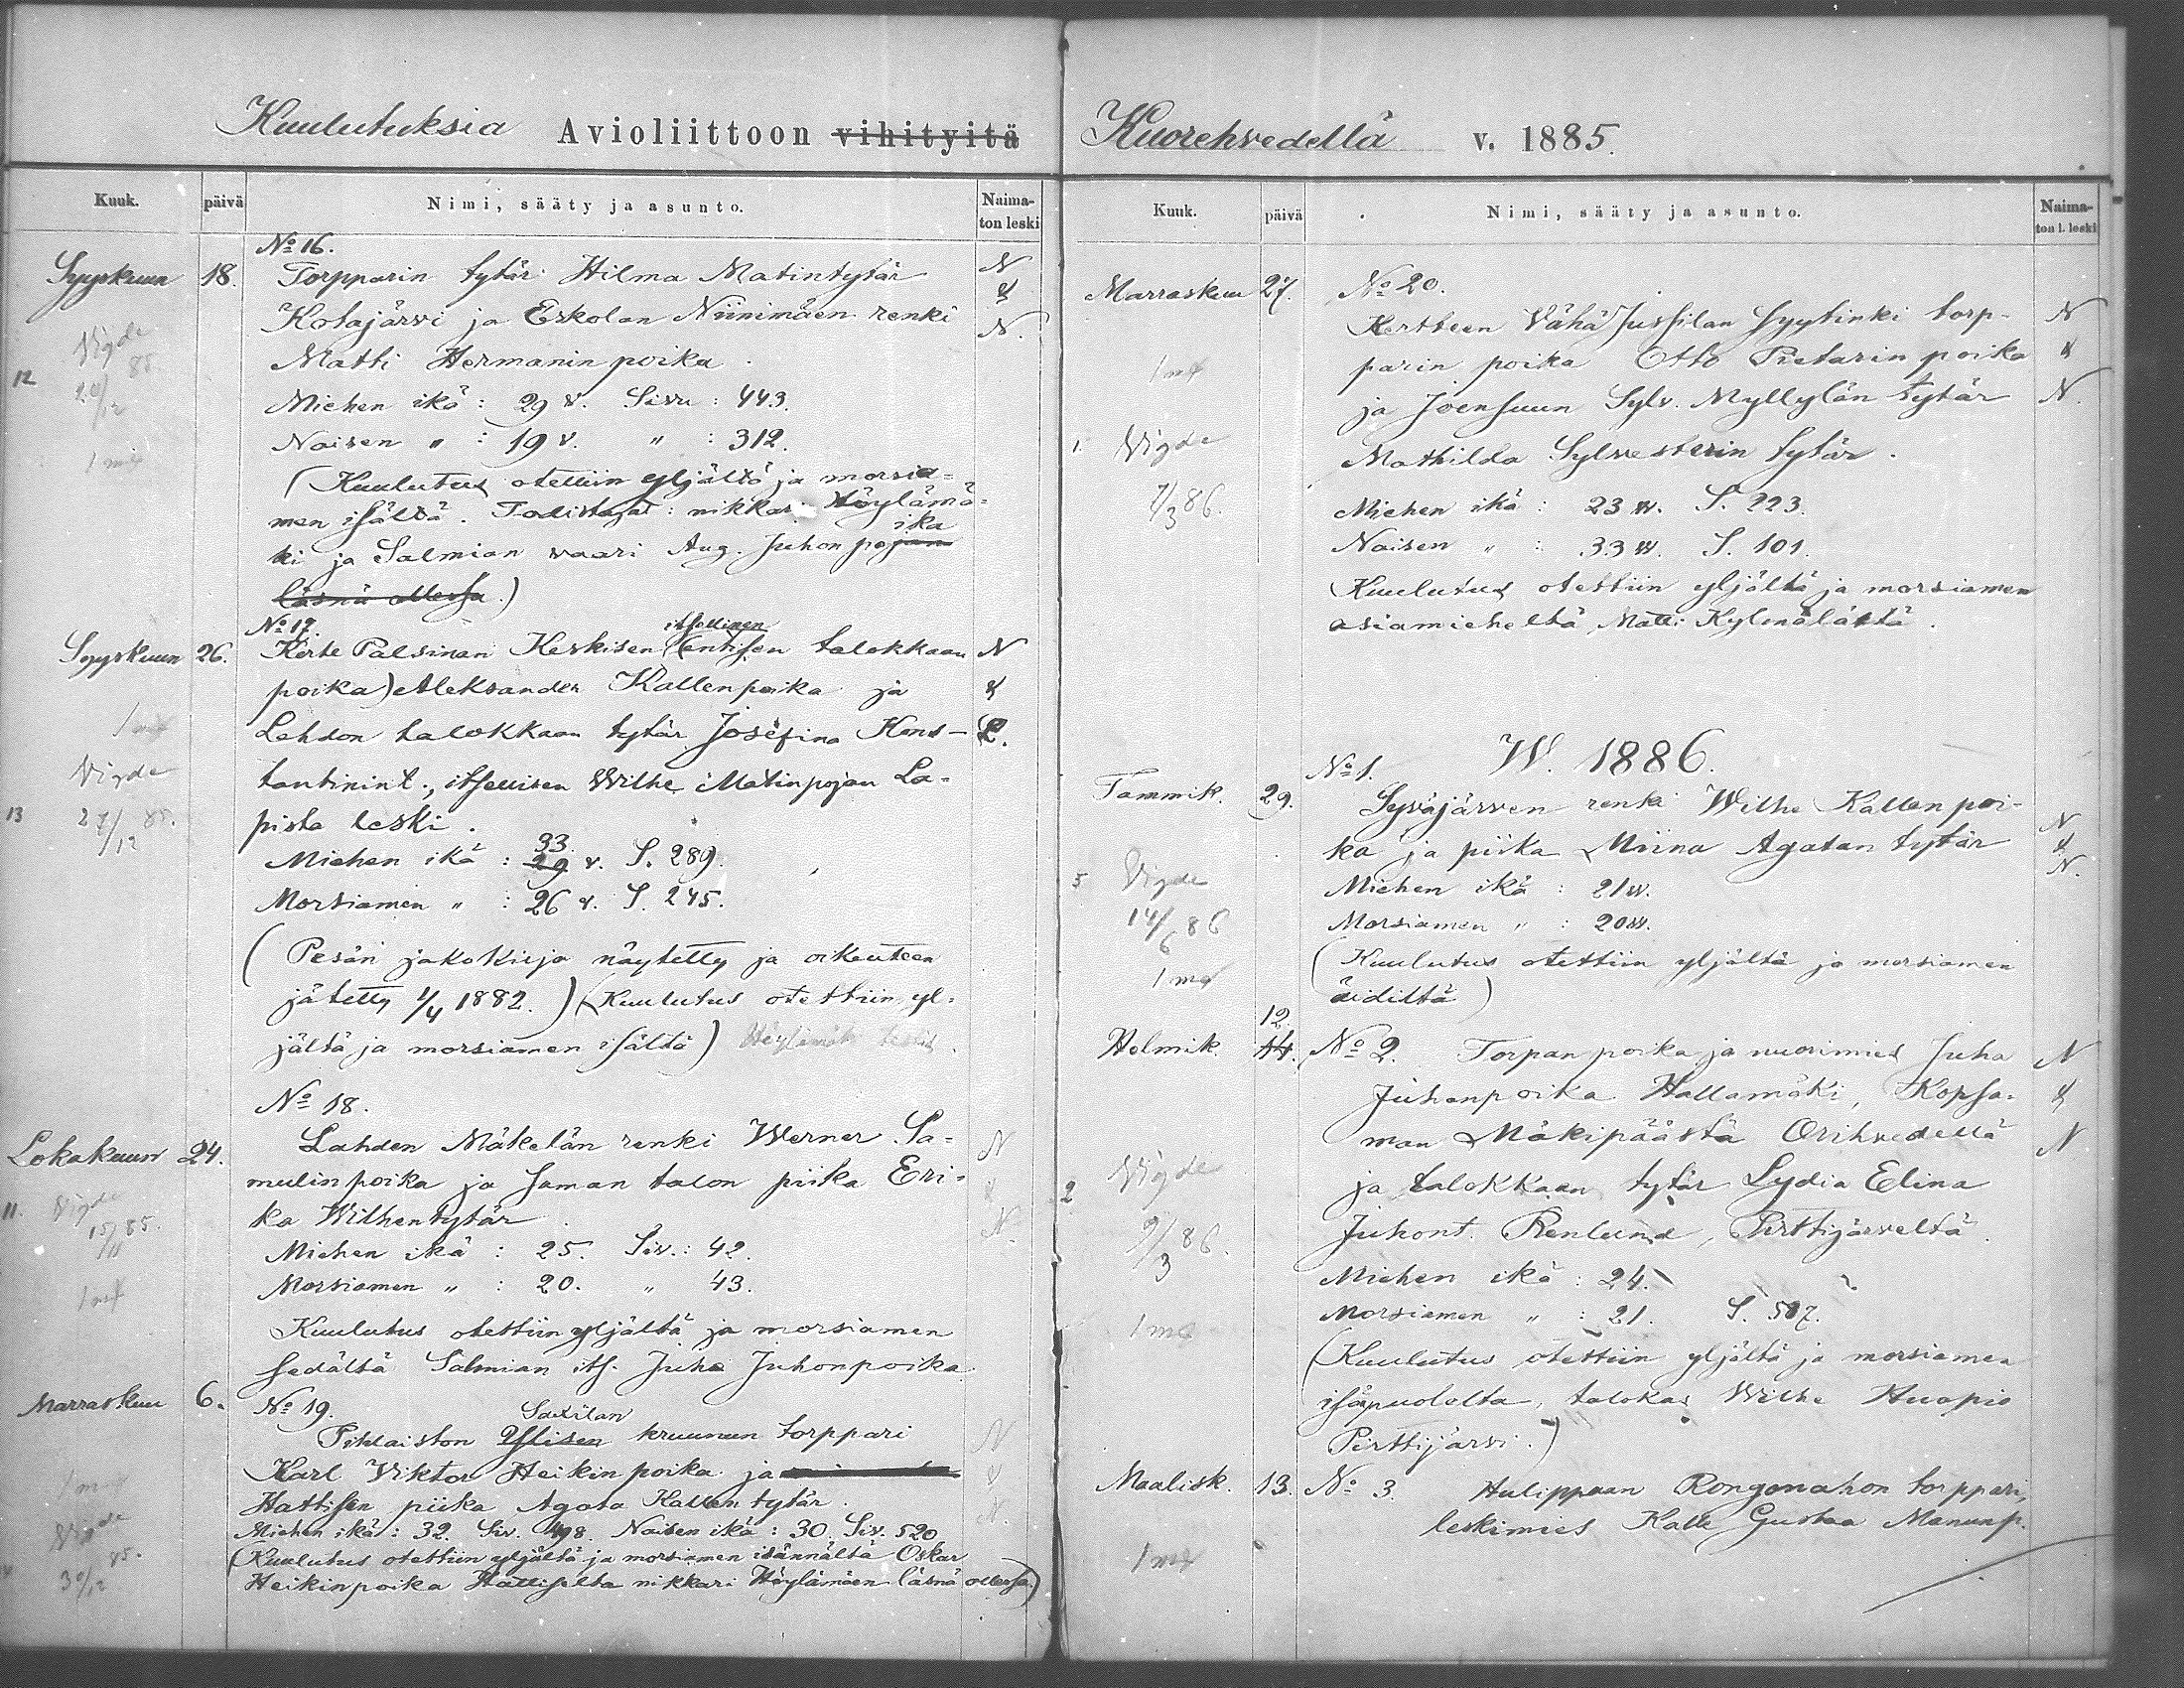 Kuulutuksia Avioliittoon vihityitä
Kuuk. päivä Nimi, sääty ja asunto. Naima-
ton leski
No 16.
Syyskuun 18. Torpparin tytär Hilma Matintytär N
Kotajärvi ja Eskolan Niinimäen renki &
Matti Hermanin poika. N.
Vigde
12 20/12 85.
Miehen ikä: 29 v. Sivu: 443.
Naisen " : 19 v. " : 312.
(Kuulutus otettiin yljältä ja morsia=
men isältä. Todistajat: nikkari Höylämä=
ika
ki ja Salmian vaari Aug. Juhon pojan
läsnä ollessa.)
No 17. itsellinen
Syyskuun 26. Kerte Palsinan Keskisen (entisen talokkaan N
poika) Aleksander Kallenpoika ja &
Lehdon talokkaan tytär Josefina Kons- L.
tantinint., itsellisen Wilhe Matinpojan La-
pista leski.
Vigde
13 27/12 85.
33
Miehen ikä: 29 v. S. 289.
Morsiamen " : 26 v. S. 245.
(Pesän jakokirja näytetty ja oikeuteen
jätetty 1/4 1882.) (Kuulutus otettiin yl=
jältä ja morsiamen isältä)
No 18.
Lokakuun 24. Lahden Mäkelän renki Werner Sa= N
mulinpoika ja saman talon piika Eri= &
ka Wilhentytär. N.
11. Vigde
15/11 85.
Miehen ikä: 25. Siv.: 42.
Morsiamen " : 20. " 43.
Kuulutus otettiin yljältä ja morsiamen
sedältä Salmian its. Juha Juhonpoika
Marraskuu 6. No 19. Saxilan
Pihlaiston Ylisen kruunun torppari N
Karl Viktor Heikinpoika ja &
Hattisen piika Agata Kallen tytär. N.
Miehen ikä: 32. Siv. 498. Naisen ikä: 30. Siv. 520
(Kuulutus otettiin yljältä ja morsiamen isännältä Oskar
Heikinpoika Halliselta nikkari Höylämäen läsnä ollessa.)
Vigde
30/12 85.
Kuorehvedellä v. 1885.
Kuuk. päivä Nimi, sääty ja asunto. Naima-
ton l. leski
Marraskuu 27. No 20.
Kertteen Vähä Jussilan Syytinki torp- N
parin poika Otto Pietarin poika &
ja Joensuun Sylv. Myllylän tytär N.
Mathilda Sylvesterin tytär.
1. Vigde
7/3 86.
Miehen ikä: 23 w. S. 223.
Naisen " : 33 w. S. 101.
Kuulutus otettiin yljältä ja morsiamen
asiamieheltä Matti Kylenälästä.
W. 1886.
No 1.
Tammik. 29. Syväjärven renki Wilhe Kallen poi-
ka ja piika Miina Agatan tytär N & N.
5 Vigde
14/6 86
Miehen ikä: 21 w.
Morsiamen " : 20 w.
(Kuulutus otettiin yljältä ja morsiamen
äidiltä)
12.
Helmik. 14. No 2. Torpan poika ja nuorimies Juha N
Juhanpoika Hallamäki, Kopsa- &
man Mäkipäästä Orihvedellä N
ja talokkaan tytär Lydia Elina
Juhont. Renlund, Pirttijärveltä.
2 Vigde
9/3 86.
Miehen ikä: 24.
Morsiamen " : 21. S. 507.
(Kuulutus otettiin yljältä ja morsiamen
isäpuolelta, talokas Wilhe Huopio
Pirttijärvi.)
Maalisk. 13. No 3. Hulippaan Rongonahon torppari,
leskimies Kalle Gustaa Manunp.